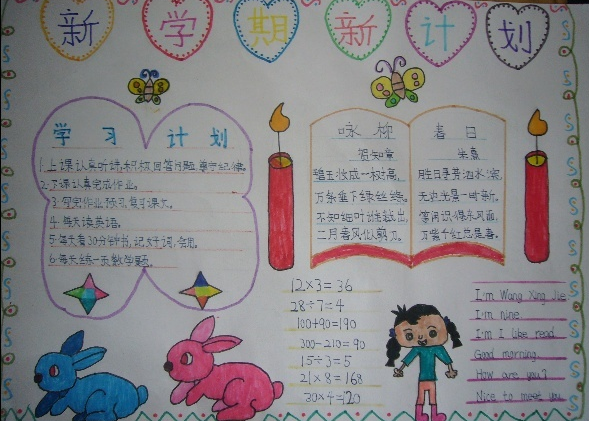 新学期新计划
学习计划
1.上课认真听讲,积极回答问题,遵守纪律。
2.下课认真完成作业。
3.句完作业预习复习课文。
4.每天读英语。
5.每天看30分钟书,记好词、佳句。
6.每天练一页数学题。
咏柳
贺知章
碧玉妆成一树高,
万条垂下绿丝绦。
不知细叶谁裁出,
二月春风似剪刀。
春日
朱熹
胜日寻芳泗水滨,
无边光景一时新。
等闲识得东风面,
万紫千红总是春。
12×3=36
28÷7=4
100+90=190
300-210=90
15÷3=5
21×8=168
30×4=120
I'm Wang Xing Jie
I'm nine.
I'm I like read
Good morning.
How are you?
Nice to meet you